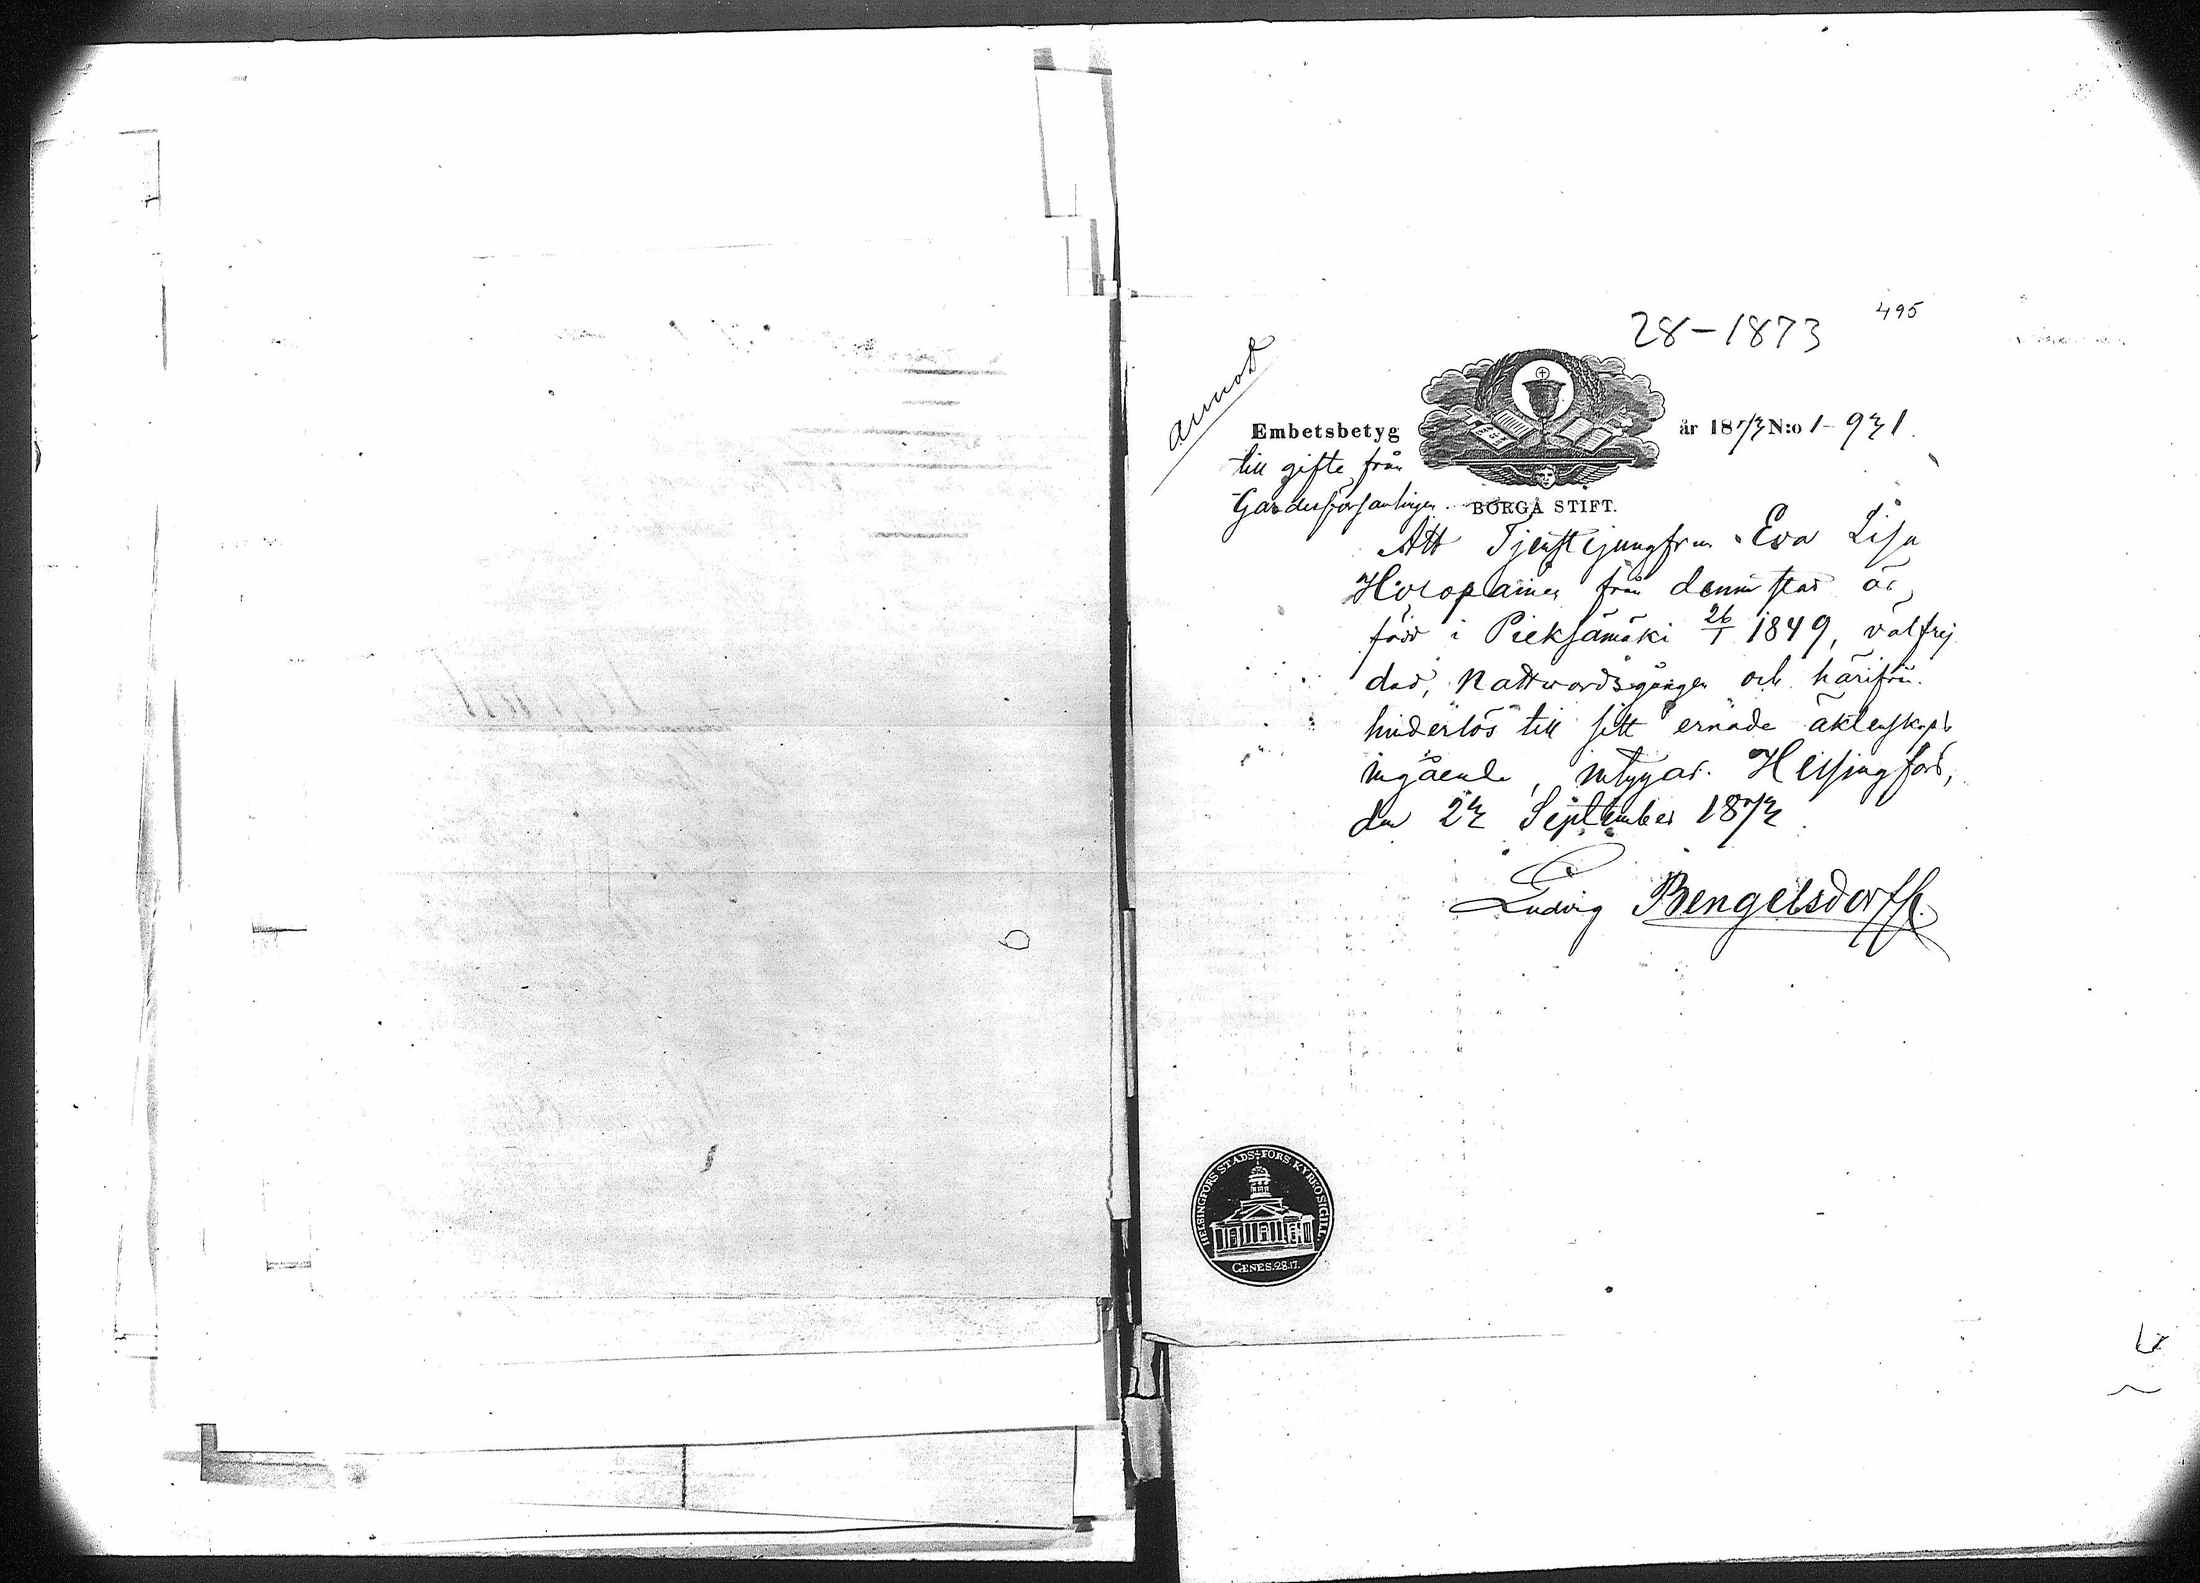 28-1873
495
annot
Embetsbetyg
år 1873 N:o 1-931.
till gifte från
Gardesförsamlingen.
BORGÅ STIFT.
Att Tjenstejungfrun Eva Lisa
Horopainen från denna stad är
född i Pieksämäki 26/1 1849, välfrej
dad, nattvardsgången och härifrån
hinderlös till sitt ernade äktenskaps
ingående, intygar. Helsingfors,
den 23 September 1873.
Ludvig Bengelsdorff.
HELSINGFORS STADS-FÖRS. KYRKOSIGILL.
GENES. 28.17.